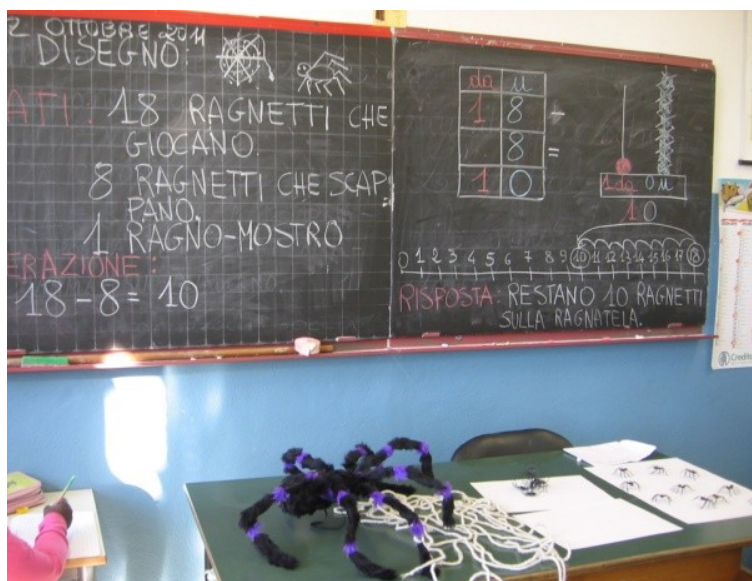 2 OTTOBRE 2011
DISEGNO:
ATI: 18 RAGNETTI CHE
GIOCANO.
8 RAGNETTI CHE SCAP
PANO.
1 RAGNO-MOSTRO
ERAZIONE:
18-8= 10
da u
1 8 -
8 =
1 0
1da 0u
10
0 1 2 3 4 5 6 7 8 9 10 11 12 13 14 15 16 17 18
RISPOSTA: RESTANO 10 RAGNETTI
SULLA RAGNATELA.
Credito